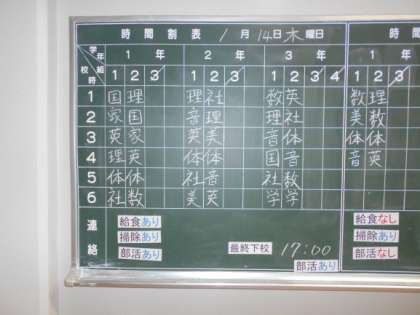 時間割表 1月14日木曜日 時間割
学年 組 校時 1年 2年 3年 1
1 2 3 1 2 3 1 2 3 1 2 3
1 国 理 理 社 数 英 数 理
2 家 国 音 理 理 社 美 数
3 英 家 英 美 音 体 体 体
4 理 英 体 体 国 音 音 英
5 体 体 社 音 社 数
6 社 数 美 英 学 学
連絡
給食あり 給食なし
掃除あり 最終下校 17:00 掃除あり
部活あり 部活あり 部活なし